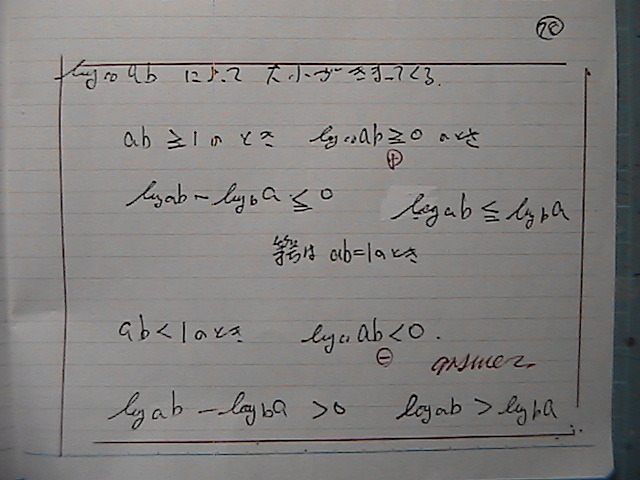 28
log₁₀ab によって 大小がきまってくる.
ab ≧ 1 のとき log₁₀ab ≧ 0 のとき
⊕
log_a b − log_b a ≦ 0 log_a b ≦ log_b a
等号は ab=1のとき
ab < 1 のとき log₁₀ab < 0.
⊖
answer.
log_a b − log_b a > 0 log_a b > log_b a